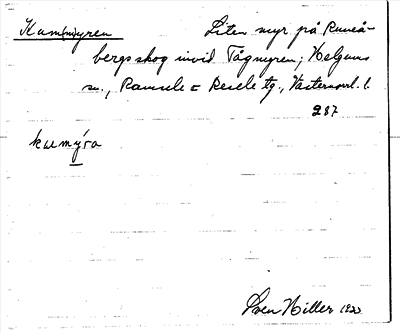 Kam(m)yren Liten myr på Runeå-
bergs skog invid Tågmyren; Helgums
sn., Ramsele o Resele tg., Västernorrl. l.
287
kamýra
Sven Hiller 1920